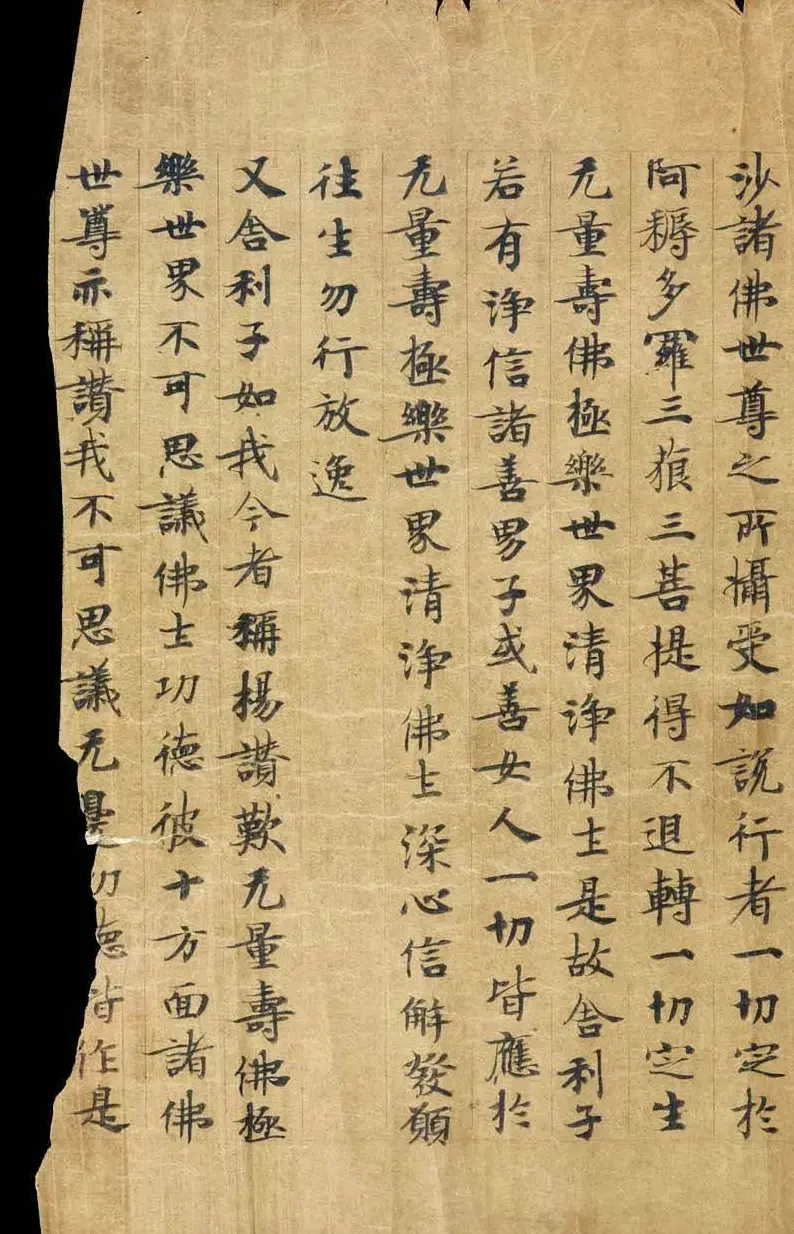 沙諸佛世尊之所攝受如說行者一切定於
阿耨多羅三藐三菩提得不退轉一切定生
无量壽佛極樂世界清淨佛土是故舍利子
若有淨信諸善男子或善女人一切皆應於
无量壽極樂世界清淨佛土深心信解發願
往生勿行放逸
又舍利子如我今者稱揚讚歎无量壽佛極
樂世界不可思議佛土功德彼十方面諸佛
世尊亦稱讚我不可思議无量功德皆作是